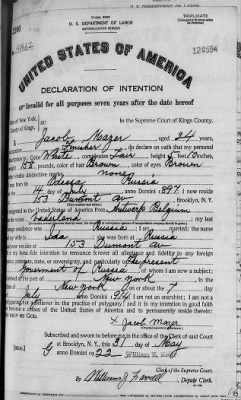 U. S. DEPARTMENT OF LABOR
TRIPLICATE
No. 124594
UNITED STATES OF AMERICA
DECLARATION OF INTENTION
Invalid for all purposes seven years after the date hereof
State of New York,
County of Kings,
In the Supreme Court of Kings County.
Jacob, aged 24 years,
occupation Finisher, do declare on oath that my personal
description is: Color White, complexion Fair, height 5 feet inches,
weight 158 pounds, color of hair Brown, color of eyes Brown
other visible distinctive marks none
I was born in Odessa Russia
on the 14 day of July, anno Domini 1897; I now reside
at 153 Dumont av, Brooklyn, N. Y.
I emigrated to the United States of America from Antwerp Belgium
on the vessel Vaderland; my last
foreign residence was Russia; I am married; the name
of my wife is Ida; she was born at Russia
and now resides at 153 Dumont av
It is my bona fide intention to renounce forever all allegiance and fidelity to any foreign
prince, potentate, state, or sovereignty, and particularly to The present
Government of Russia, of whom I am now a subject;
I arrived at the port of New York, in the
State of New York, on or about the 7 day
of July, anno Domini; I am not an anarchist; I am not a
polygamist nor a believer in the practice of polygamy; and it is my intention in good faith
to become a citizen of the United States of America and to permanently reside therein:
SO HELP ME GOD.
Subscribed and sworn to before me in the office of the Clerk of said Court
at Brooklyn, N. Y., this day of May
anno Domini 1922
Clerk of the Supreme Court.
By Deputy Clerk.